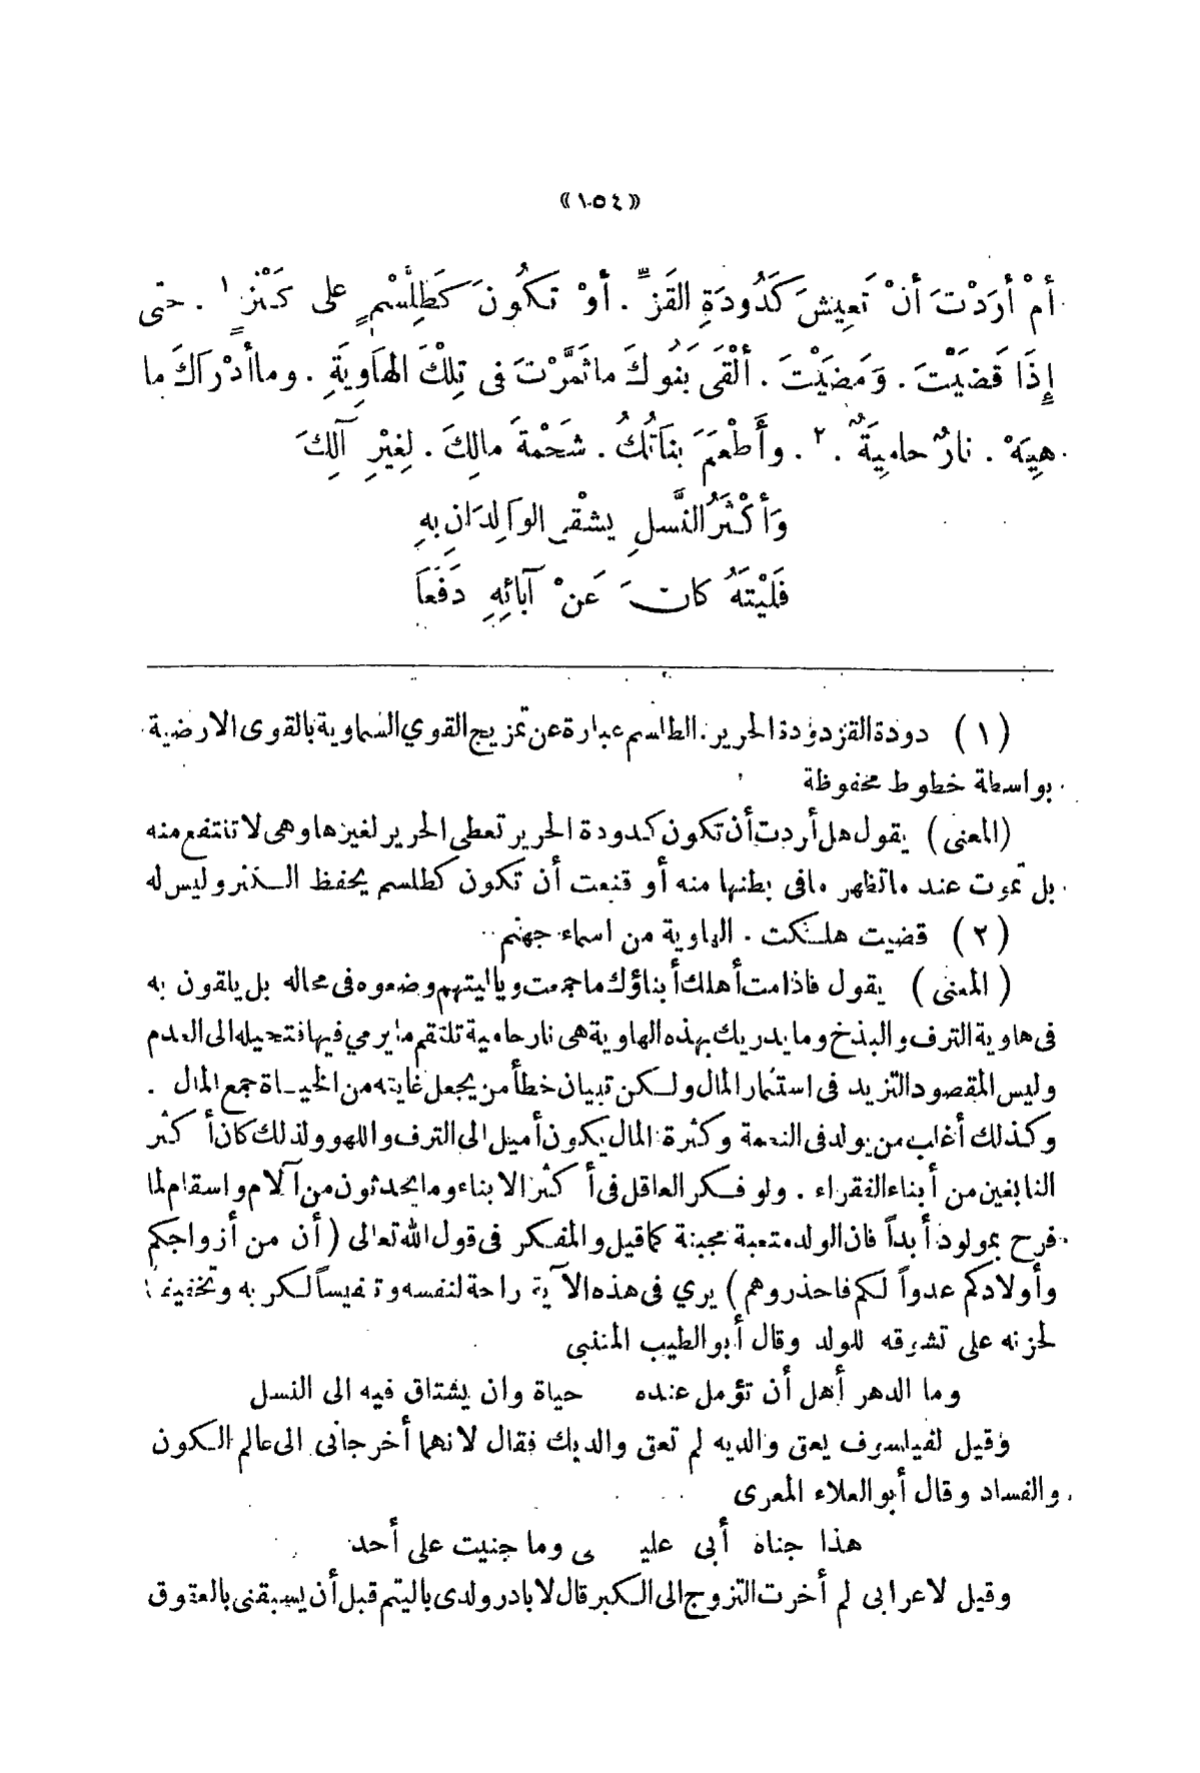 «١٠٥٤»
أَمْ أَرَدْتَ أَنْ تَعِيشَ كَدُودَةِ القَزِّ . أَوْ تَكُونَ كَطِلَّسْمٍ على كَنْزٍ ١ . حتى
إِذَا قَضَيْتَ . وَمَضَيْتَ . أَلْقَى بَنُوكَ ماثَمَّرْتَ فى تِلْكَ الهَاوِيَةِ . وماأَدْرَاكَ ما
هِيَهْ . نارٌ حامِيَةٌ . ٢ . وأَطْعَمَ بَنَاتُكَ . شَحْمَةَ مالِكَ . لِغَيْرِ آلِكَ
وَأَكْثَرُ النَّسلِ يشْقَى الوَالِدَانِ بهِ
فَلَيْتَهُ كانَ عَنْ آبائِهِ دَفَعَا
(١) دودة القز دودة الحرير . الطلسم عبارة عن تمزيج القوي السماوية بالقوى الارضية
بواسطة خطوط محفوظة
(المعنى) يقول هل أردت أن تكون كدودة الحرير تعطى الحرير لغيرها وهى لا تنتفع منه
بل تموت عند ماتظهر مافى بطنها منه أو قنعت أن تكون كطلسم يحفظ الكنز وليس له
(٢) قضيت هلكت . الهاوية من اسماء جهنم
(المعنى) يقول فاذا مت أهلك أبناؤك ما جمعت وياليتهم وضعوه فى محاله بل يلقون به
فى هاوية الترف والبذخ وما يدريك بهذه الهاوية هى نار حامية تلتقم ما يرمي فيها فتحيله الى العدم
وليس المقصود التزيد فى استثمار المال ولكن تبيان خطأ من يجعل غايته من الحياة جمع المال .
وكذلك أغلب من يولد فى النعمة وكثرة المال يكون أميل الى الترف واللهو ولذلك كان أكثر
النابغين من أبناء الفقراء . ولو فكر العاقل فى أكثر الابناء وما يحدثون من آلام واسقام لما
فرح بمولود أبداً فان الولد متعبة مجبنة كما قيل والمفكر فى قول الله تعالى (أن من أزواجكم
وأولادكم عدواً لكم فاحذروهم) يري فى هذه الآية راحة لنفسه وتنفيساً لكربه وتخفيفاً
لحزنه على تشرقه للولد وقال أبو الطيب المتنبى
وما الدهر أهل أن تؤمل عنده حياة وان يشتاق فيه الى النسل
وقيل لفيلسوف يعق والديه لم تعق والديك فقال لانهما أخرجانى الى عالم الكون
والفساد وقال أبو العلاء المعرى
هذا جناه أبى عليـ ى وما جنيت على أحد
وقيل لاعرابى لم أخرت التزوج الى الكبر قال لابادر ولدى باليتم قبل أن يسبقنى بالعقوق